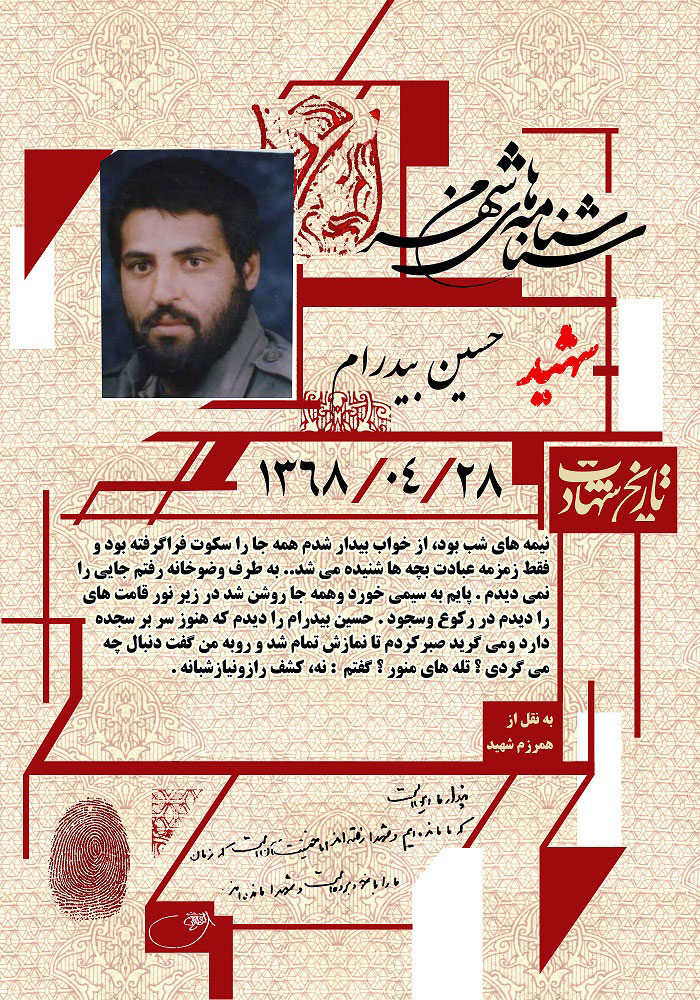 شناسنامه های شهر من
شهید
حسین بیدرام
تاریخ شهادت
۱۳۶۸/۰۴/۲۸
نیمه های شب بود، از خواب بیدار شدم همه جا را سکوت فراگرفته بود و
فقط زمزمه عبادت بچه ها شنیده می شد.. به طرف وضوخانه رفتم جایی را
نمی دیدم . پایم به سیمی خورد وهمه جا روشن شد در زیر نور قامت های
را دیدم در رکوع وسجود . حسین بیدرام را دیدم که هنوز سر بر سجده
دارد ومی گرید صبرکردم تا نمازش تمام شد و روبه من گفت دنبال چه
می گردی ؟ تله های منور ؟ گفتم : نه، کشف رازونیازشبانه .
به نقل از
همرزم شهید
پندار ما این است
که ما مانده ایم و شهدا رفته اند اما حقیقت آن است که زمان
ما را با خود برده است و شهدا مانده اند